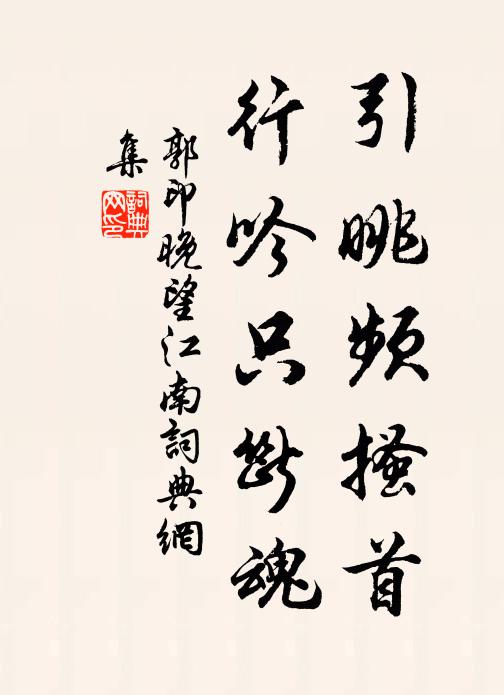 引眺频搔首
行吟只断魂
郭印晚望江南詞典網
集
詞典
网印